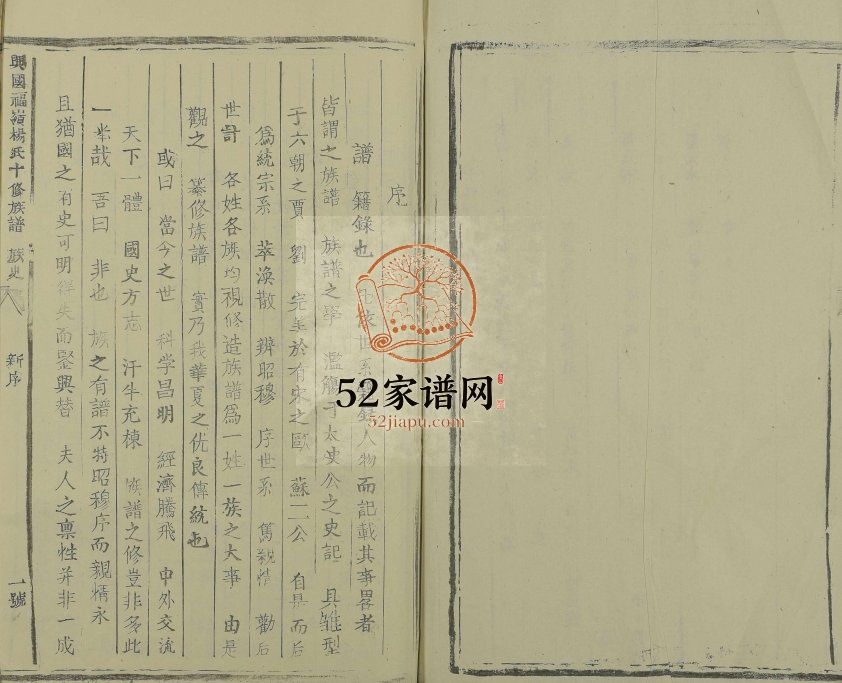 序
譜 籍錄也 依世系 人物而記載其事畧者
皆謂之族譜 族譜之學 濫觴于太史公之史記 具雛型
于六朝之賈 劉 完善於有宋之歐 蘇二公 自是而后
爲統宗系 萃渙散 辨昭穆 序世系 篤親情 勸后
世計 各姓各族均視修造族譜爲一姓一族之大事 由是
觀之 纂修族譜 實乃我華夏之优良傳統也
或曰 當今之世 科学昌明 經濟騰飛 中外交流
天下一體 國史方志 汗牛充棟 族譜之修豈非多此
一举哉 吾曰 非也 族之有譜不特昭穆序而親情永
且猶國之有史可明得失而鑒興替 夫人之禀性并非一成
興國福嶺楊氏十修族譜 族史 新序 一號
52家谱网
52jiapu.com